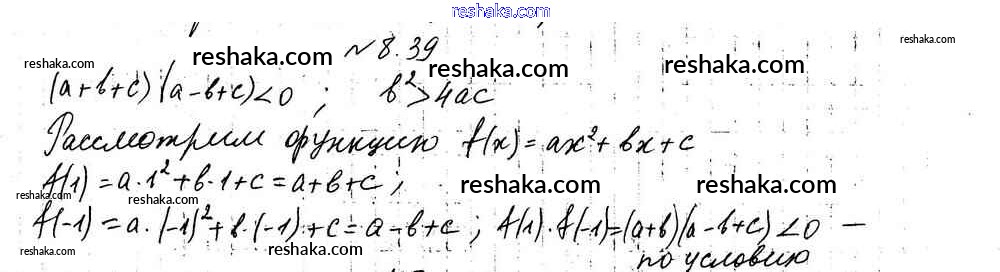 reshaka.com
№ 8.39
reshaka.com
reshaka.com
reshaka.com
reshaka.com
reshaka.com
(a+b+c)(a-b+c)<0 ; b²>4ac
reshaka.com
Рассмотрим функцию f(x)=ax²+bx+c
f(1)=a·1²+b·1+c=a+b+c;
reshaka.com
reshaka.com
reshaka.com
f(-1)=a·(-1)²+b·(-1)+c=a-b+c; f(1)·f(-1)=(a+b)(a-b+c)<0 —
reshaka.com
reshaka.com
reshaka.com
по условию